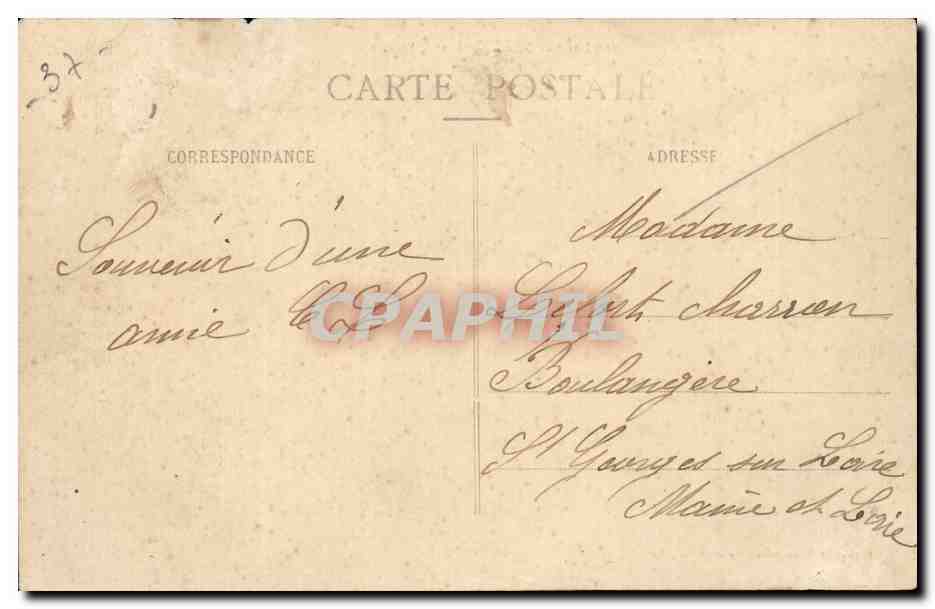 37
CARTE POSTALE
CORRESPONDANCE
ADRESSE
Souvenir d'une
amie
CPAPHIL
Madame
Charron
Boulangère
St Georges sur Loire
Maine et Loire